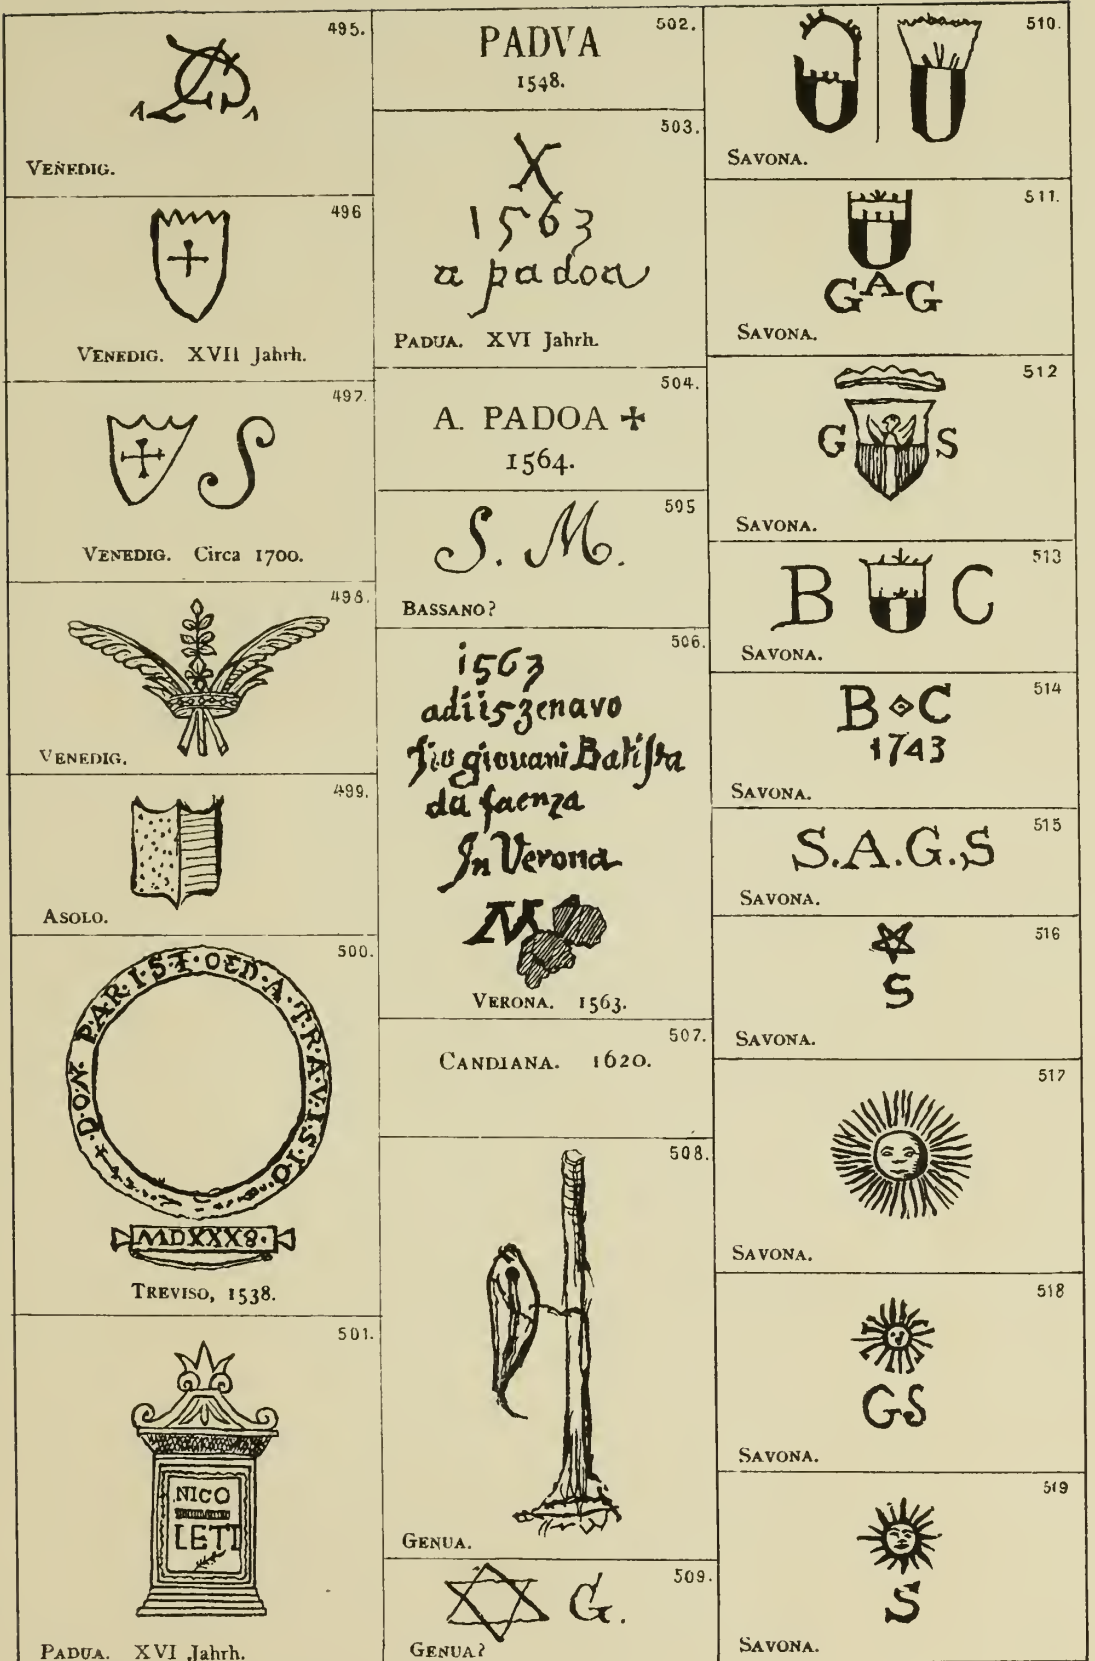 495.
1 1
VENEDIG.
496
VENEDIG. XVII Jahrh.
497.
S
VENEDIG. Circa 1700.
498.
VENEDIG.
499.
ASOLO.
500.
+ D·O·N· PA·R·I·S·I· OED·A·T·R·A·V·I·S·I·O·
MDXXX8·
TREVISO, 1538.
501.
NICO
LETI
PADUA. XVI Jahrh.
502.
PADVA
1548.
503.
X
1563
a padoa
PADUA. XVI Jahrh.
504.
A. PADOA ✠
1564.
505
S. M.
BASSANO?
506.
1563
adi 15 zenavo
Jio giovani Batista
da faenza
In Verona
M
VERONA. 1563.
507.
CANDIANA. 1620.
508.
GENUA.
509.
G.
GENUA?
510.
SAVONA.
511.
GAG
SAVONA.
512
G S
SAVONA.
513
B C
SAVONA.
514
B C
1743
SAVONA.
515
S.A.G.S
SAVONA.
516
S
SAVONA.
517
SAVONA.
518
GS
SAVONA.
519
S
SAVONA.